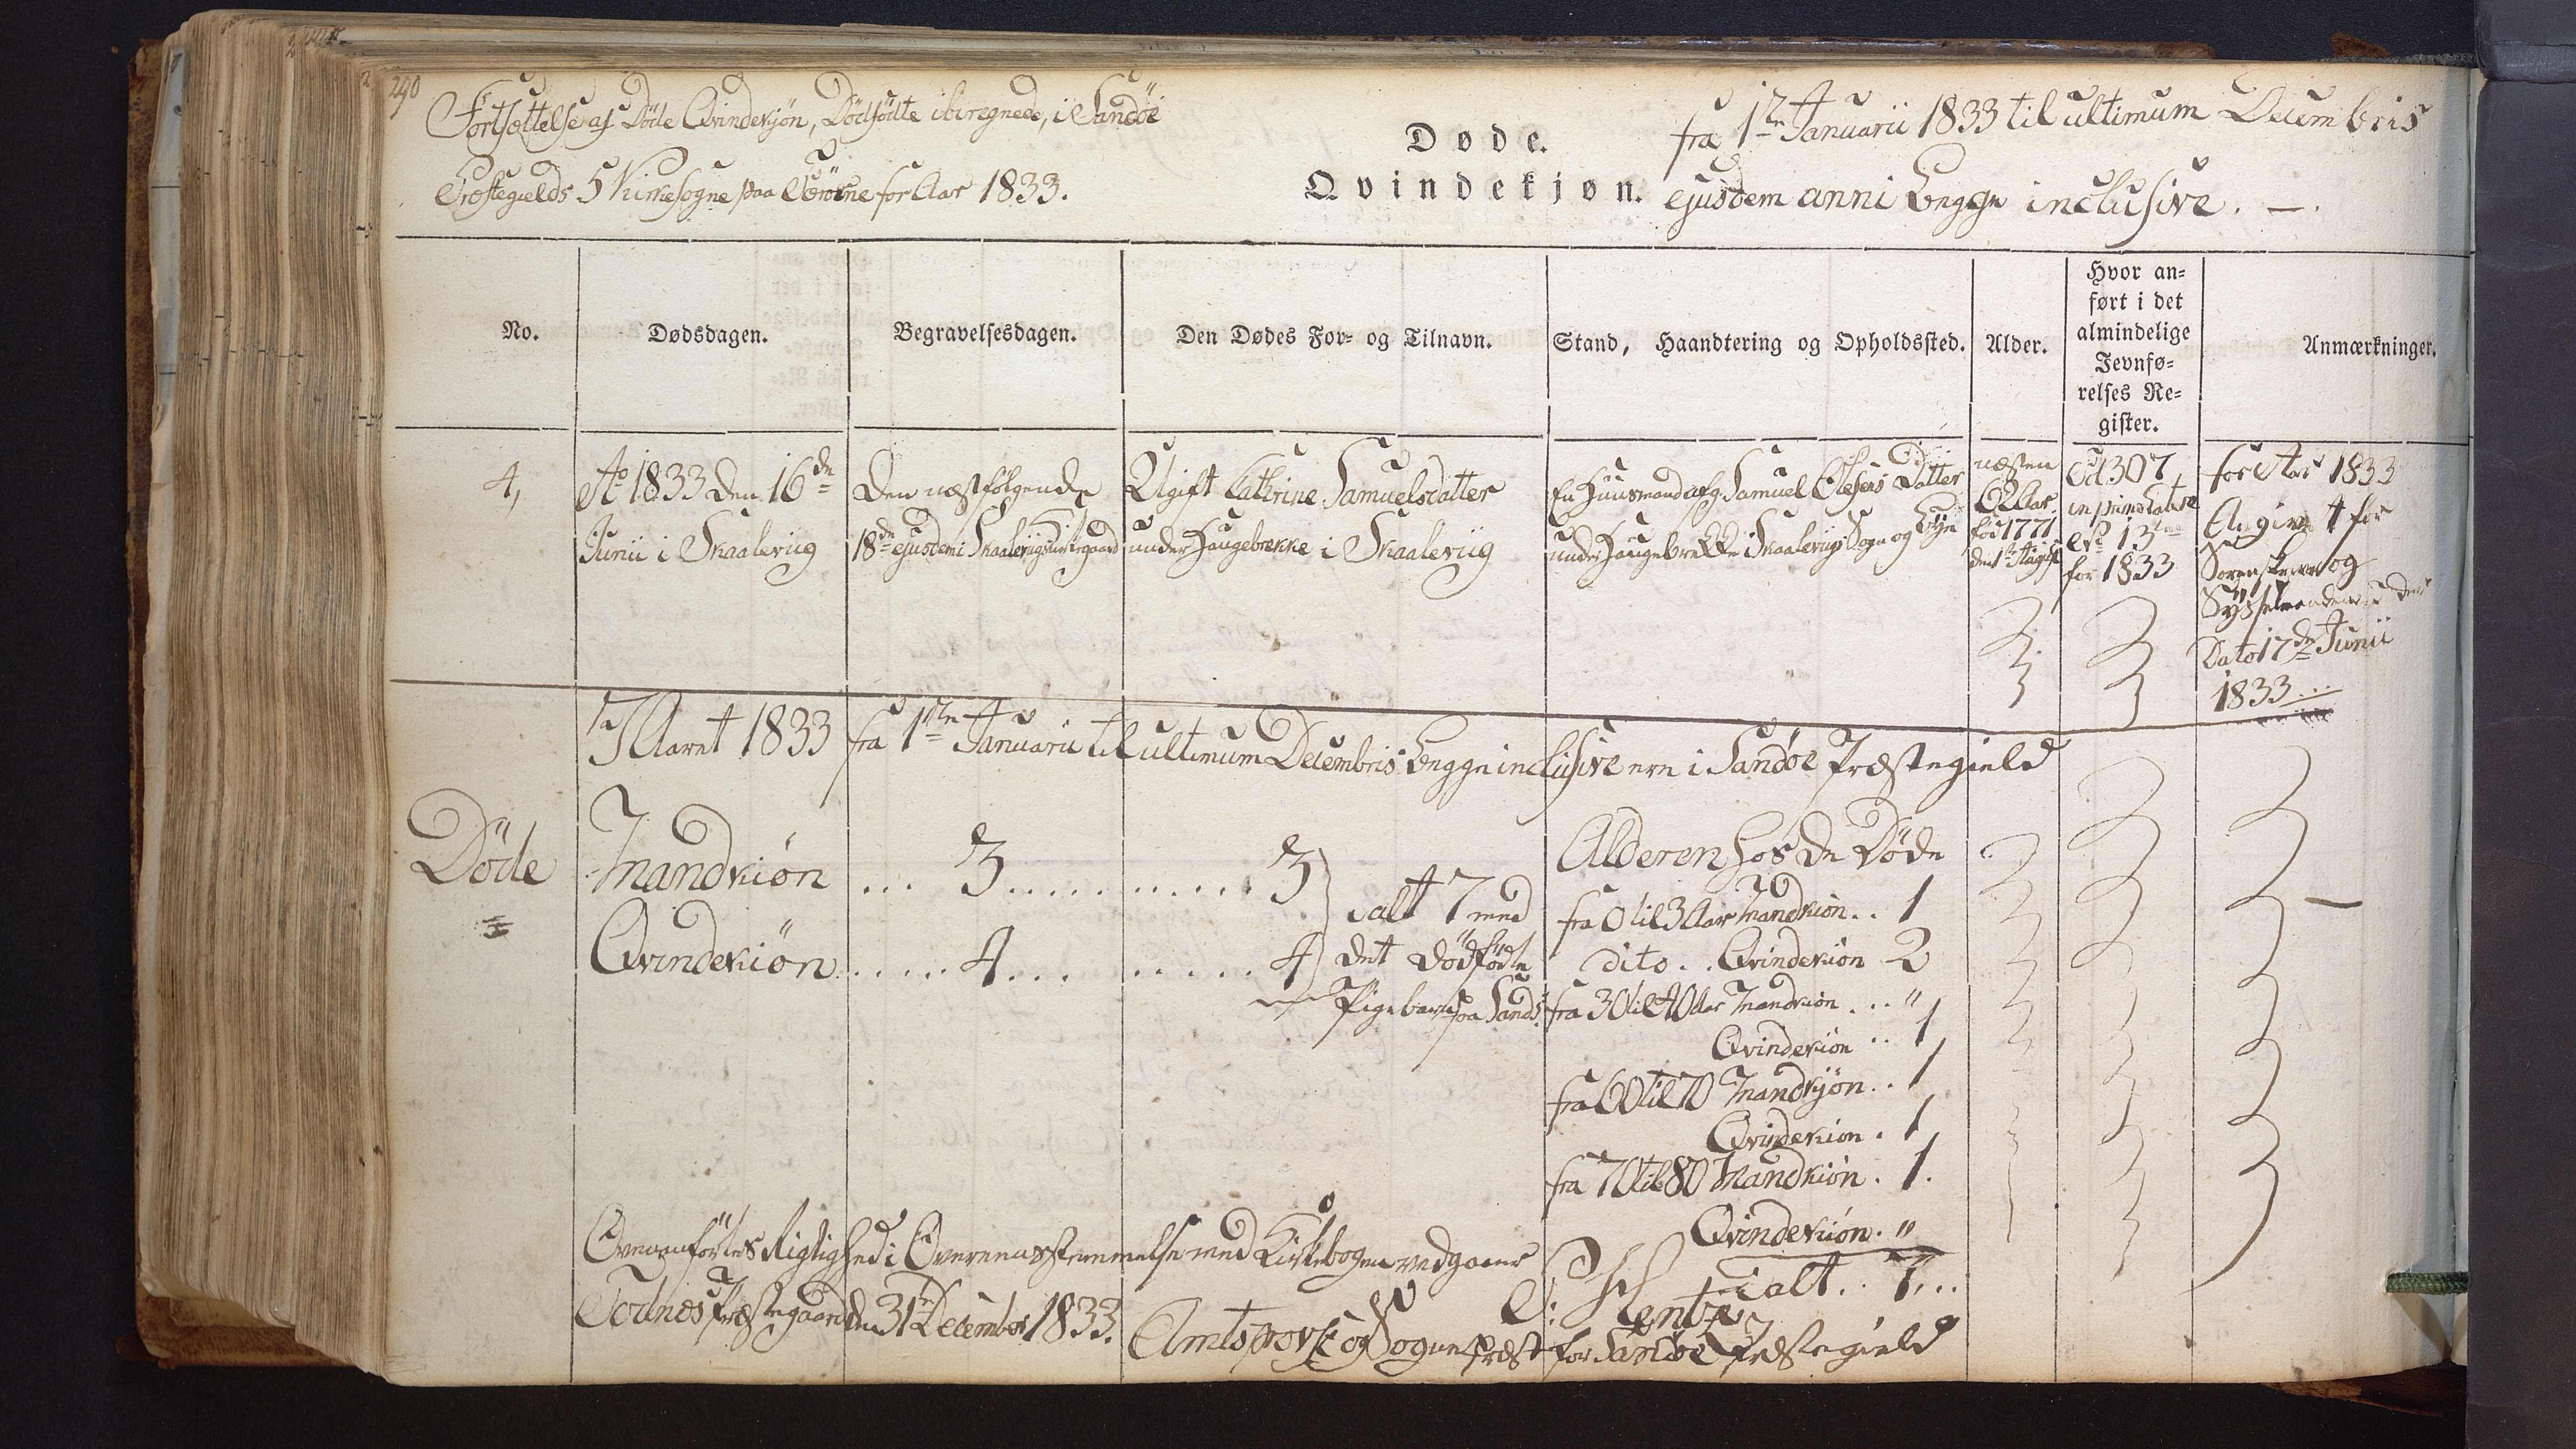 290
Fortsættelse af Döde Qvindekjön, Dödfödte iberegnede, i Sandöe
Præstegields 5 Kirkesogne paa Færöerne for Aar 1833.
Døde.
Qvindekjøn.
fra 1ste Januarii 1833 til ultimum Decembris
ejusdem anni begge inclusive. —.
No.
Dødsdagen.
Begravelsesdagen.
Den Dødes For- og Tilnavn.
Stand, Haandtering og Opholdssted.
Alder.
Hvor an-
ført i det
almindelige
Jevnfø-
relses Re-
gister.
Anmærkninger.
4,
Ao 1833 den 16de
Junii i Skaalevüg
Den næstfölgende
18de ejusdem i Skaalevügs Kirkegaard
Ugift Cathrine Samuelsdatter
under Haugebrekke i Skaalevüg
En Huusmand afg. Samuel Olesens Datter
under Haugebrekke i Skaalevügs Sogn og Bye
næsten
62 Aar.
föd 1771
den 1ste August
307
No 13
for 1833
for Aar 1833
Angivet for
Sorenskriver og
Sysselmanden
Dato 17de Junii
1833...
I Aaret 1833 fra 1ste Januarii til ultimum Decembris begge inclusive ere i Sandöe Præstegield
Döde
Mandkiön ... 3 ........... 3
Qvindekiön ..... 4 ... ..... 4
ialt 7 med
det dödfödte
Pigebarn paa Sand.
Alderen hos de Döde
fra 0 til 3 Aar Mandkiön .. 1
dito .. Qvindekiön 2
fra 30 til 40 Aar Mandkiön ... "
Qvindekiön .. 1
fra 60 til 70 Mandkjön .. 1
Qvindekiön . 1
fra 70 til 80 Mandkiön . 1.
Qvindekiön . "
ialt .. 7...
Ovenanförtes Rigtighed i Overeensstemmelse med Kirkebogen vedgaaes
Todnes Præstegaard den 31te December 1833.
Amtsprovst og Sognepræst for Sandöe Præstegield